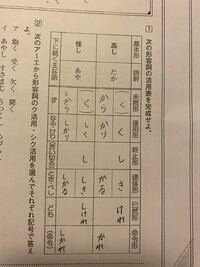 1 次の形容詞の活用表を完成せよ。
基本形 語幹 未然形 連用形 終止形 連体形 已然形 命令形
高し たか く から く かり し き かる けれ かれ
怪し あや しく しから しく しかり し しき しかる しけれ しかれ
下に続く主な語 ず なる・けり (言い切る) とき・べし ども (命令)
2 次のア〜エから形容詞のク活用・シク活用を選んでそれぞれ記号で答えよ。
ア 飽く 受く 欠く 開く
イ あやし すさまじ